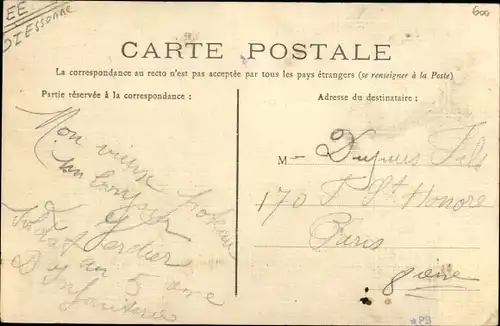 EE
DIESSONNE
600
CARTE POSTALE
La correspondance au recto n'est pas acceptée par tous les pays étrangers (se renseigner à la Poste)
Partie réservée à la correspondance :
Mon vieux
un
Verdier
au 5 eme
D'Infanterie
Adresse du destinataire :
M Fils
170 F St Honore
Paris
8 eme
*PB